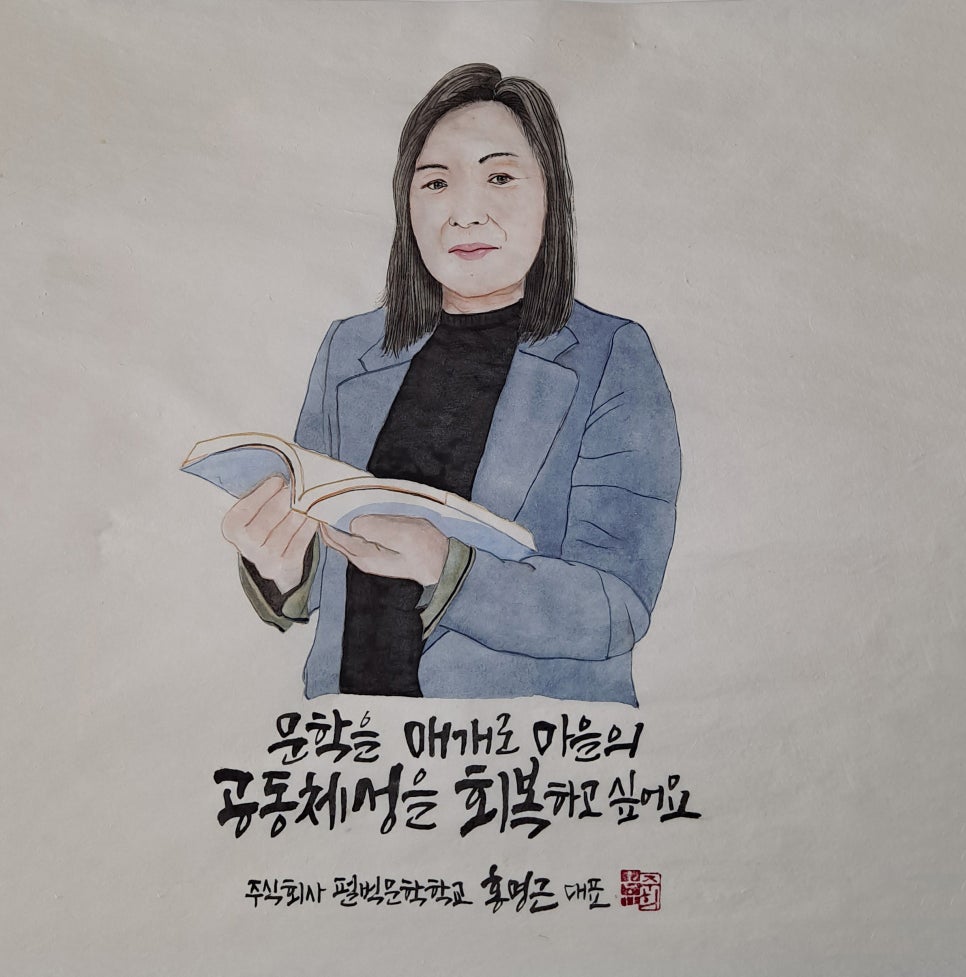 문학을 매개로 마을의
공동체성을 회복하고 싶어요
주식회사 펄벅문학학교 홍명근 대표